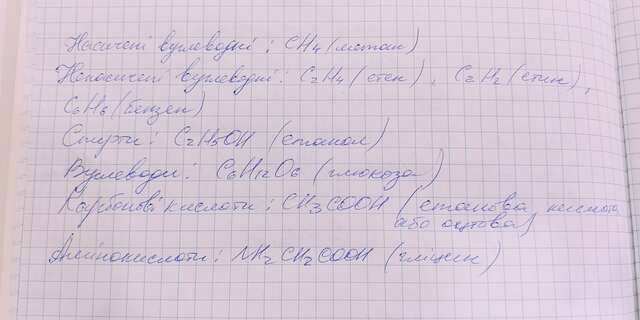 Насичені вуглеводні: CH4 (метан)
Ненасичені вуглеводні: C2H4 (етен), C2H2 (етин),
C6H6 (бензен)
Спирти: C2H5OH (етанол)
Вуглеводи: C6H12O6 (глюкоза)
Карбонові кислоти: CH3COOH (етанова кислота
або оцтова)
Амінокислоти: NH2CH2COOH (гліцин)